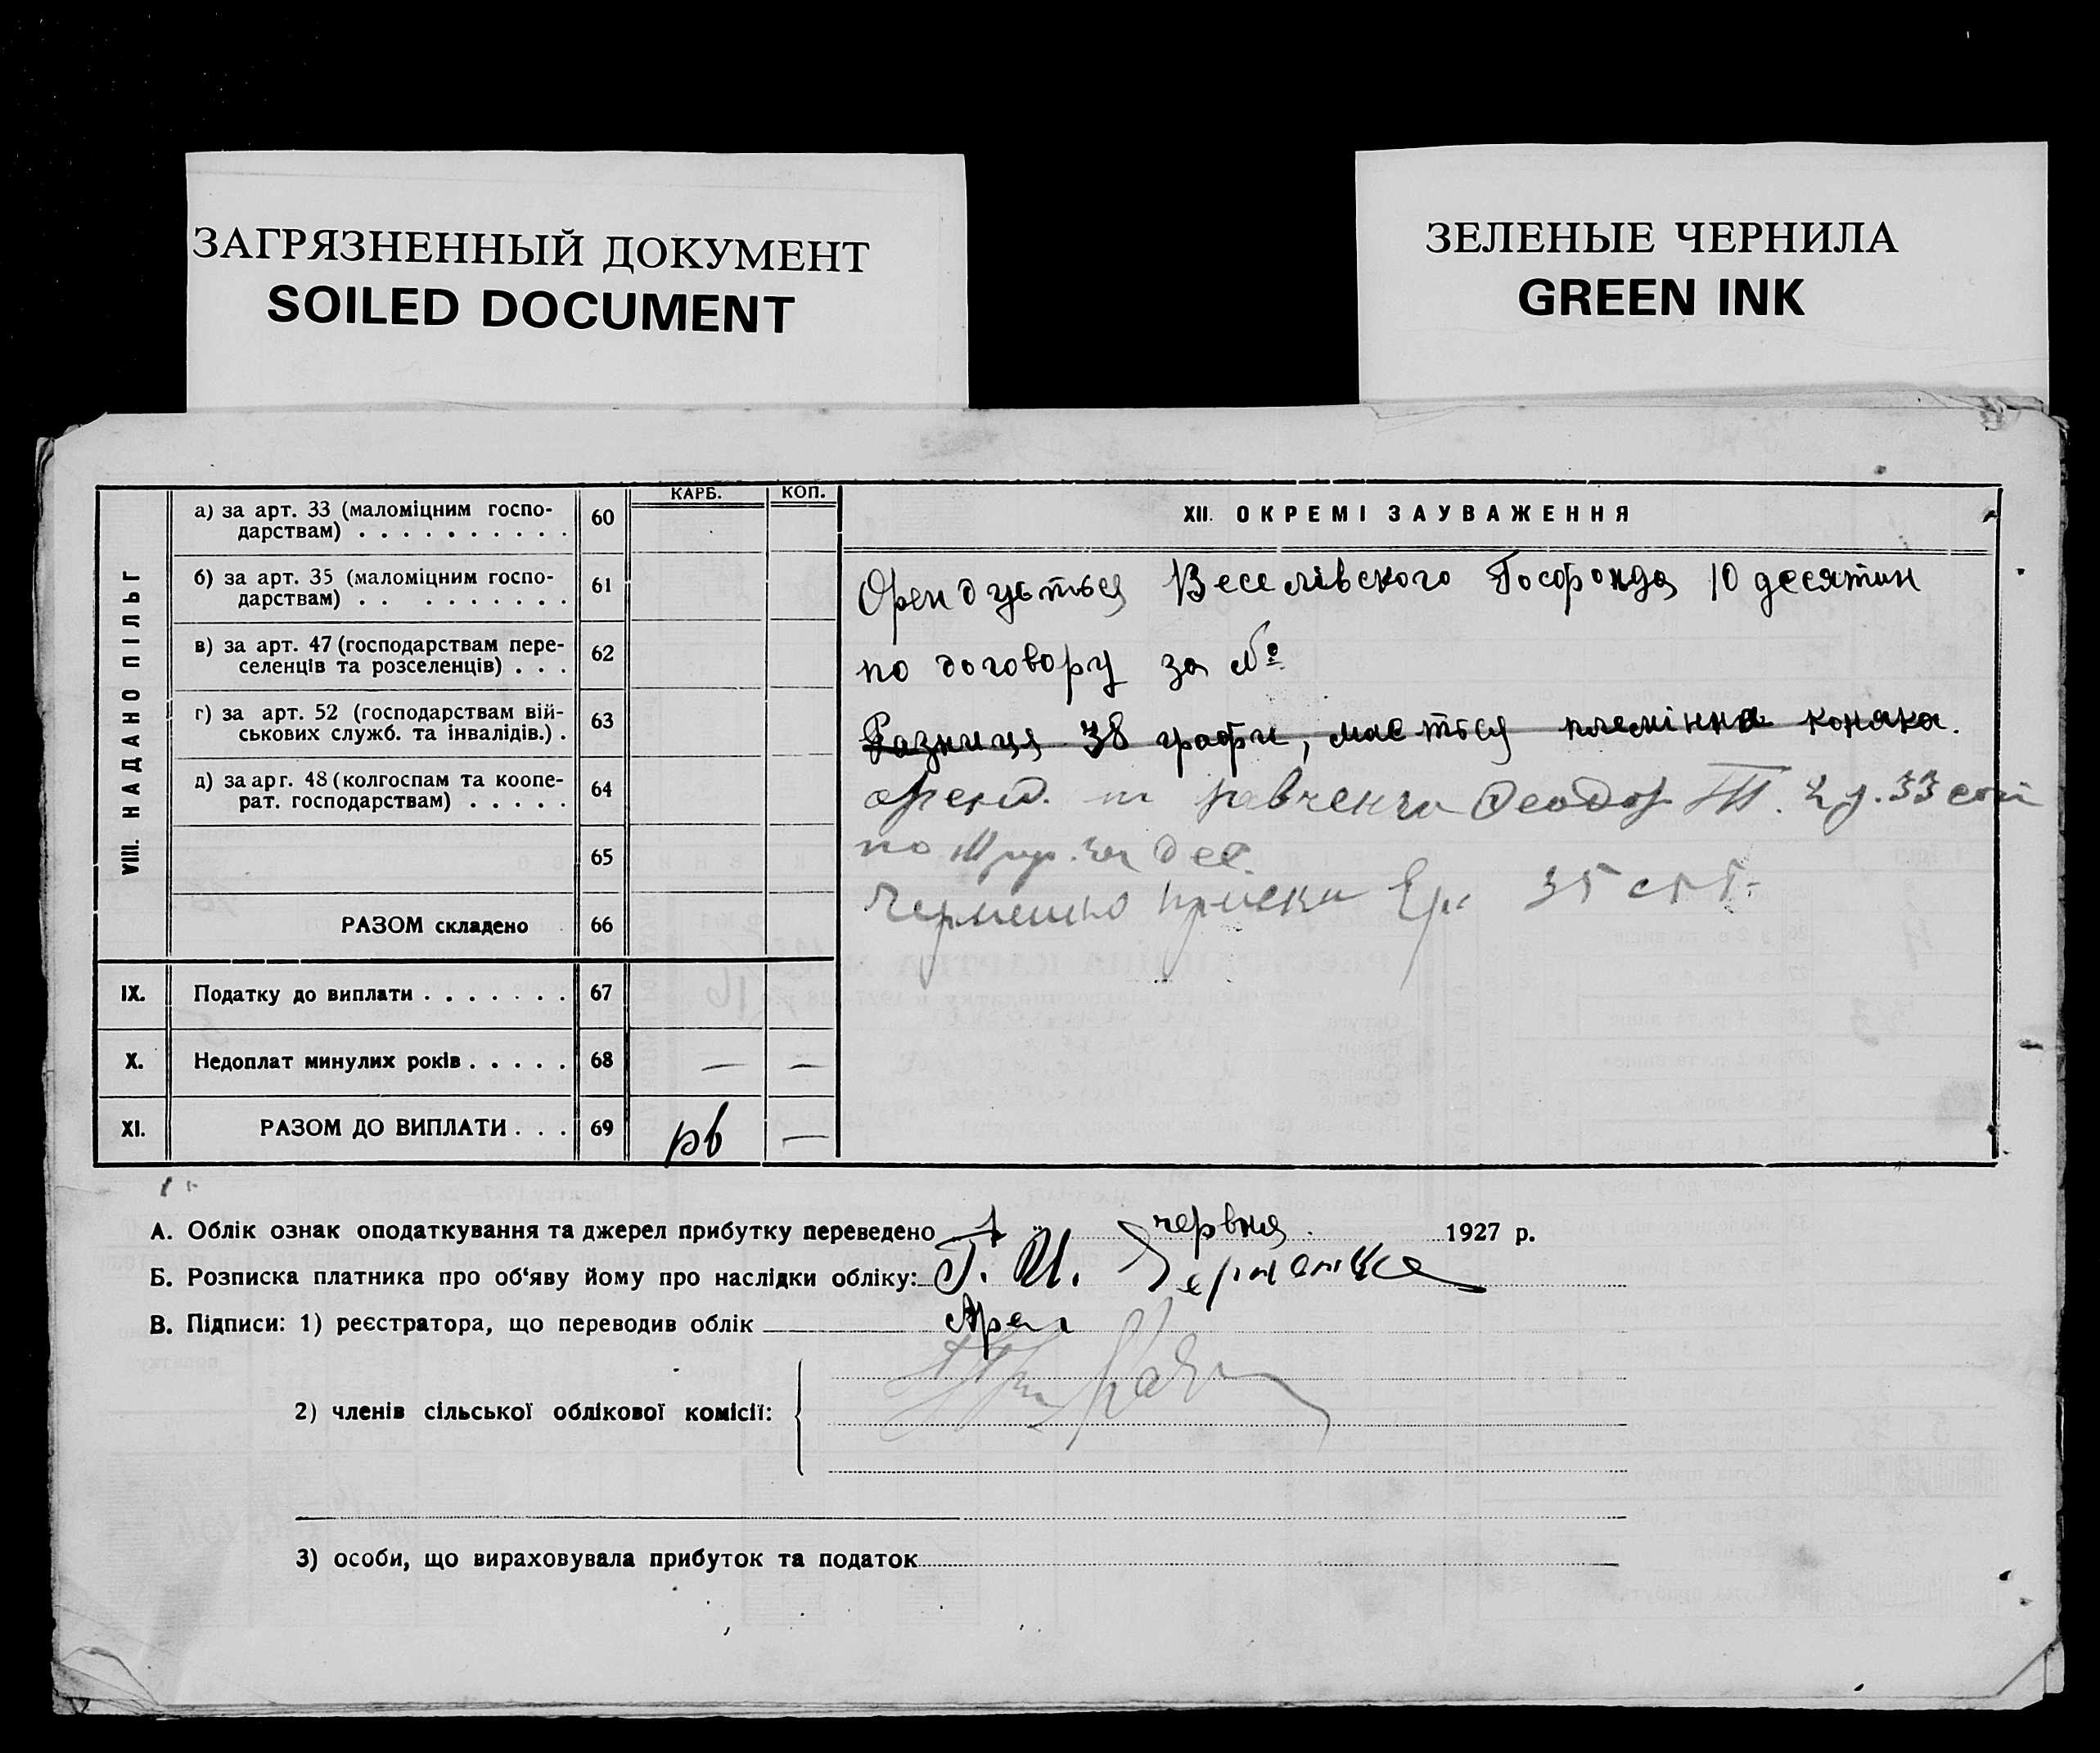 ЗАГРЯЗНЕННЫЙ ДОКУМЕНТ
SOILED DOCUMENT
ЗЕЛЕНЫЕ ЧЕРНИЛА
GREEN INK
VIII. НАДАНО ПІЛЬГ
КАРБ. КОП.
а) за арт. 33 (маломіцним госпо-
дарствам) . . . . . . . . . . 60
б) за арт. 35 (маломіцним госпо-
дарствам) . . . . . . . . . 61
в) за арт. 47 (господарствам пере-
селенців та розселенців) . . . 62
г) за арт. 52 (господарствам вій-
ськових служб. та інвалідів.) . 63
д) за арг. 48 (колгоспам та коопе-
рат. господарствам) . . . . . 64
65
РАЗОМ складено 66
IX. Податку до виплати . . . . . . . 67
X. Недоплат минулих років . . . . . 68 — —
XI. РАЗОМ ДО ВИПЛАТИ . . . 69 —
XII. ОКРЕМІ ЗАУВАЖЕННЯ
Орендується Веселівського Госфонда 10 десятин
по договору за №
Разниця 38 графи, мається племінна коняка.
оренд. Теодор 33
по за дес.
35
А. Облік ознак оподаткування та джерел прибутку переведено 1 червня 1927 р.
Б. Розписка платника про об'яву йому про наслідки обліку: Г. И.
В. Підписи: 1) реєстратора, що переводив облік
2) членів сільської облікової комісії:
3) особи, що вираховувала прибуток та податок